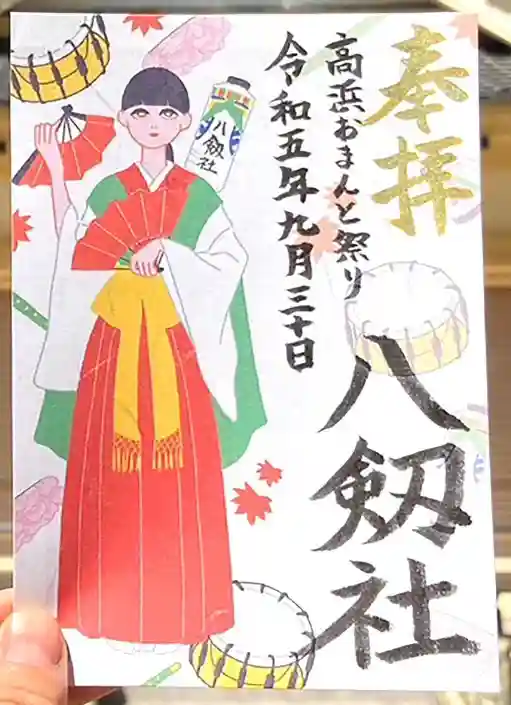 奉拝
八剱社
高浜おまんと祭り
令和五年九月三十日
八剱社